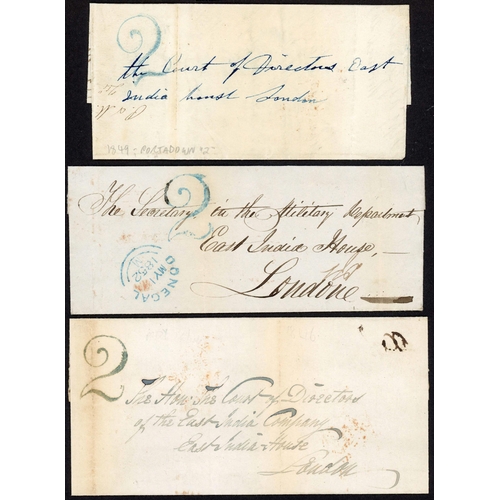 2
the Court of Directors East
India house London
1849 - PORTADOWN "2"
2
The Secretary in the Military Department
East India House, —
London
DONEGAL
MY
1852
2
The Hon: The Court of Directors
of the East India Company
East India House
London